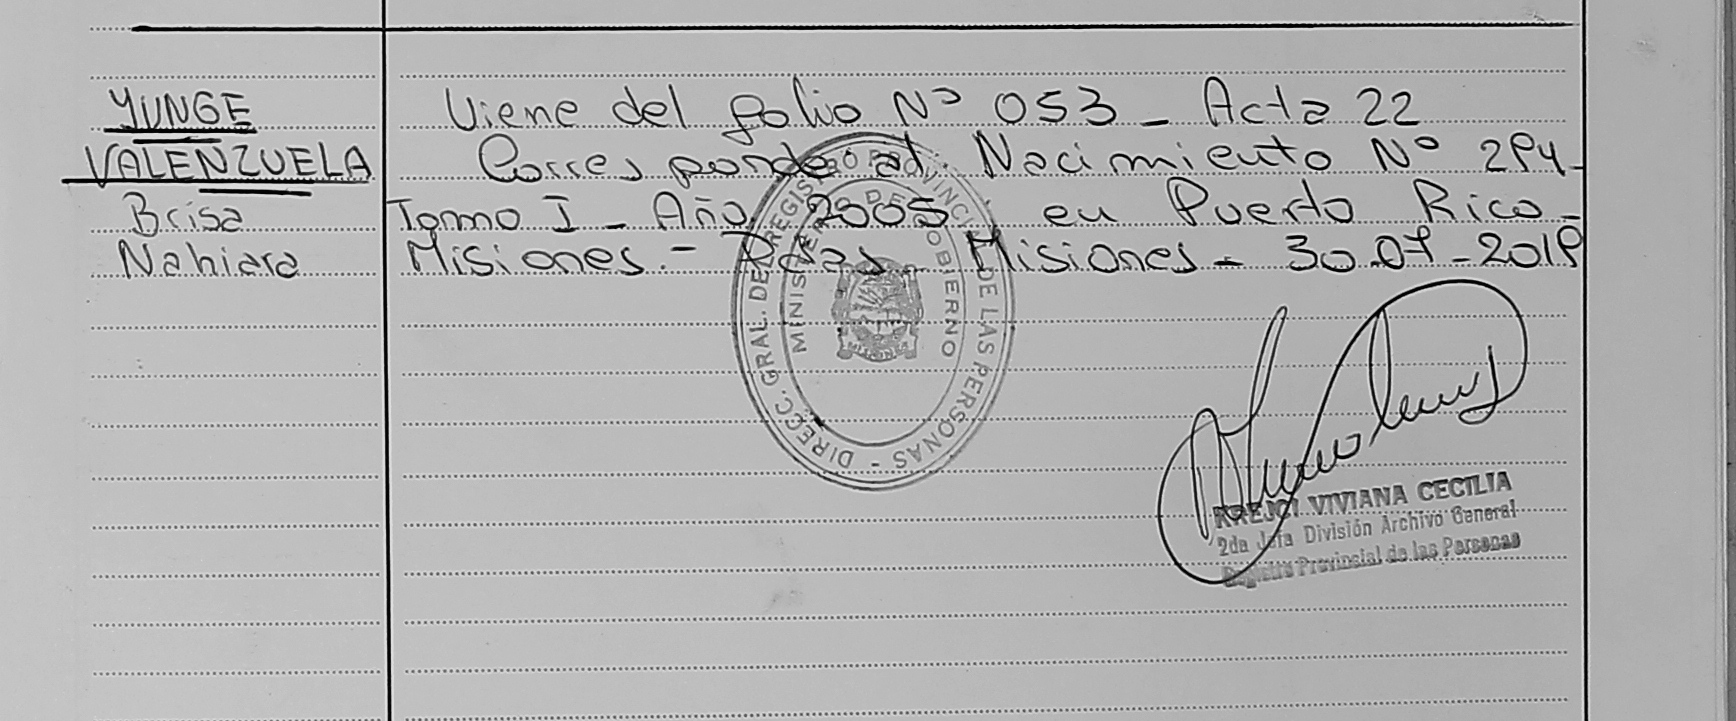 YUNGE
VALENZUELA
Brisa
Nahiara
Viene del folio Nº 053 - Acta 22
Corresponde al Nacimiento Nº 294 -
Tomo I - Año 2005 en Puerto Rico -
Misiones.- Pdas. Misiones - 30.07-2019
DIRECC. GRAL. DEL REGISTRO PROVINCIAL DE LAS PERSONAS -
MINISTERIO DE GOBIERNO
MISIONES
KREJCI VIVIANA CECILIA
2da Jefa División Archivo General
Registro Provincial de las Personas